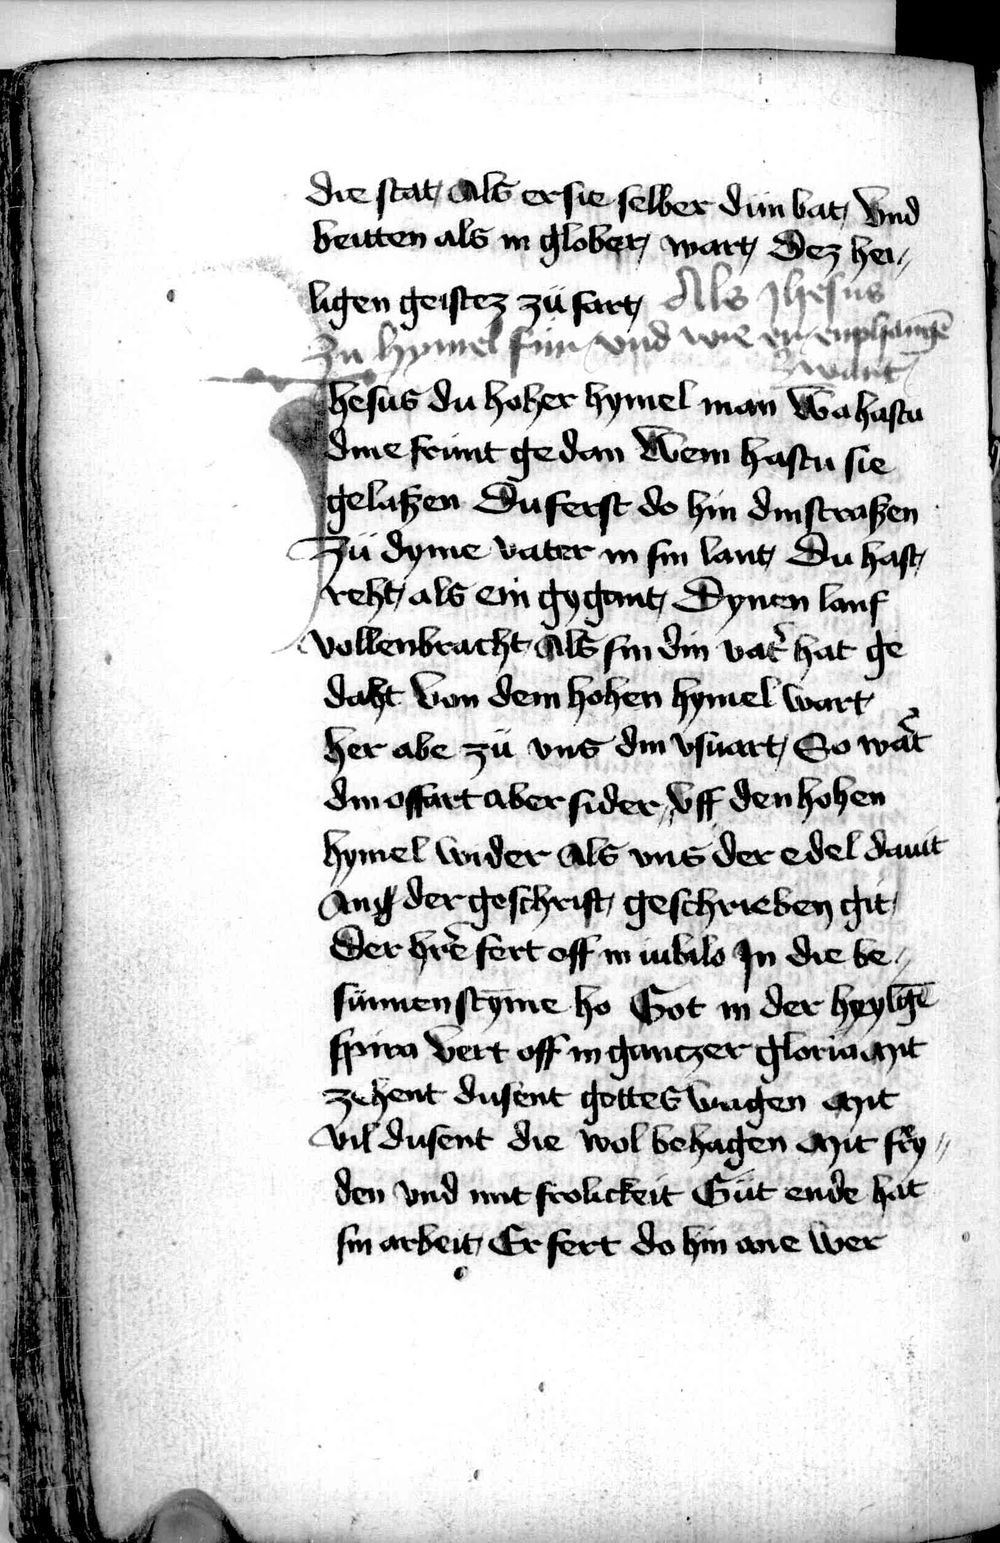 die stat, Als er sie selber dün bat, Vnd
beitten als in glober, wart, Dez hei„
ligen geistez zü fart, Als Jhesus
Zu hymel fün vnd wie er enphangē
wart
Jhesus du hoher hymel man Wa hastu
dine frünt gedan Wem hastu sie
gelaßen Du ferst do hin din straßen
Zü dyme vater in sin lant, Du hast,
reht, als ein gygant, Dynen lauf
vollenbracht, Als sin din vat̾ hat ge
daht Von dem hohen hymel wart,
her abe zü vns din vsuart, So wa̾t
din offart aber sider„ Vff den hohen
hymel wider Als vns der edel dauit
An der geschrift, geschrieben git,
Der hr̄e fert off in iubilo In die be„
sünnen styme ho Got in der heylgē
spira Vert off in gantzer gloria Mit
zehent dusent gottes wagen Mit
vil dusent die wol behagen Mit frŷ„
den vnd mit frolickeit Güt ende hat
sin arbeit, Er fert do hin ane wer